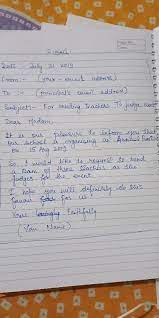 Email
Date:- July 31 2019
From:- (your - email address)
To :- (principal's email address)
Subject:- For sending teachers To judge
Dear Madam,
It is our pleasure to inform you that
our school is organising
on 15 Aug 2019
So, I would like to request to send
a team of three teachers as the
judges for the event.
I hope you will definitely do this
favour for us!
Yours faithfully
(Your Name)